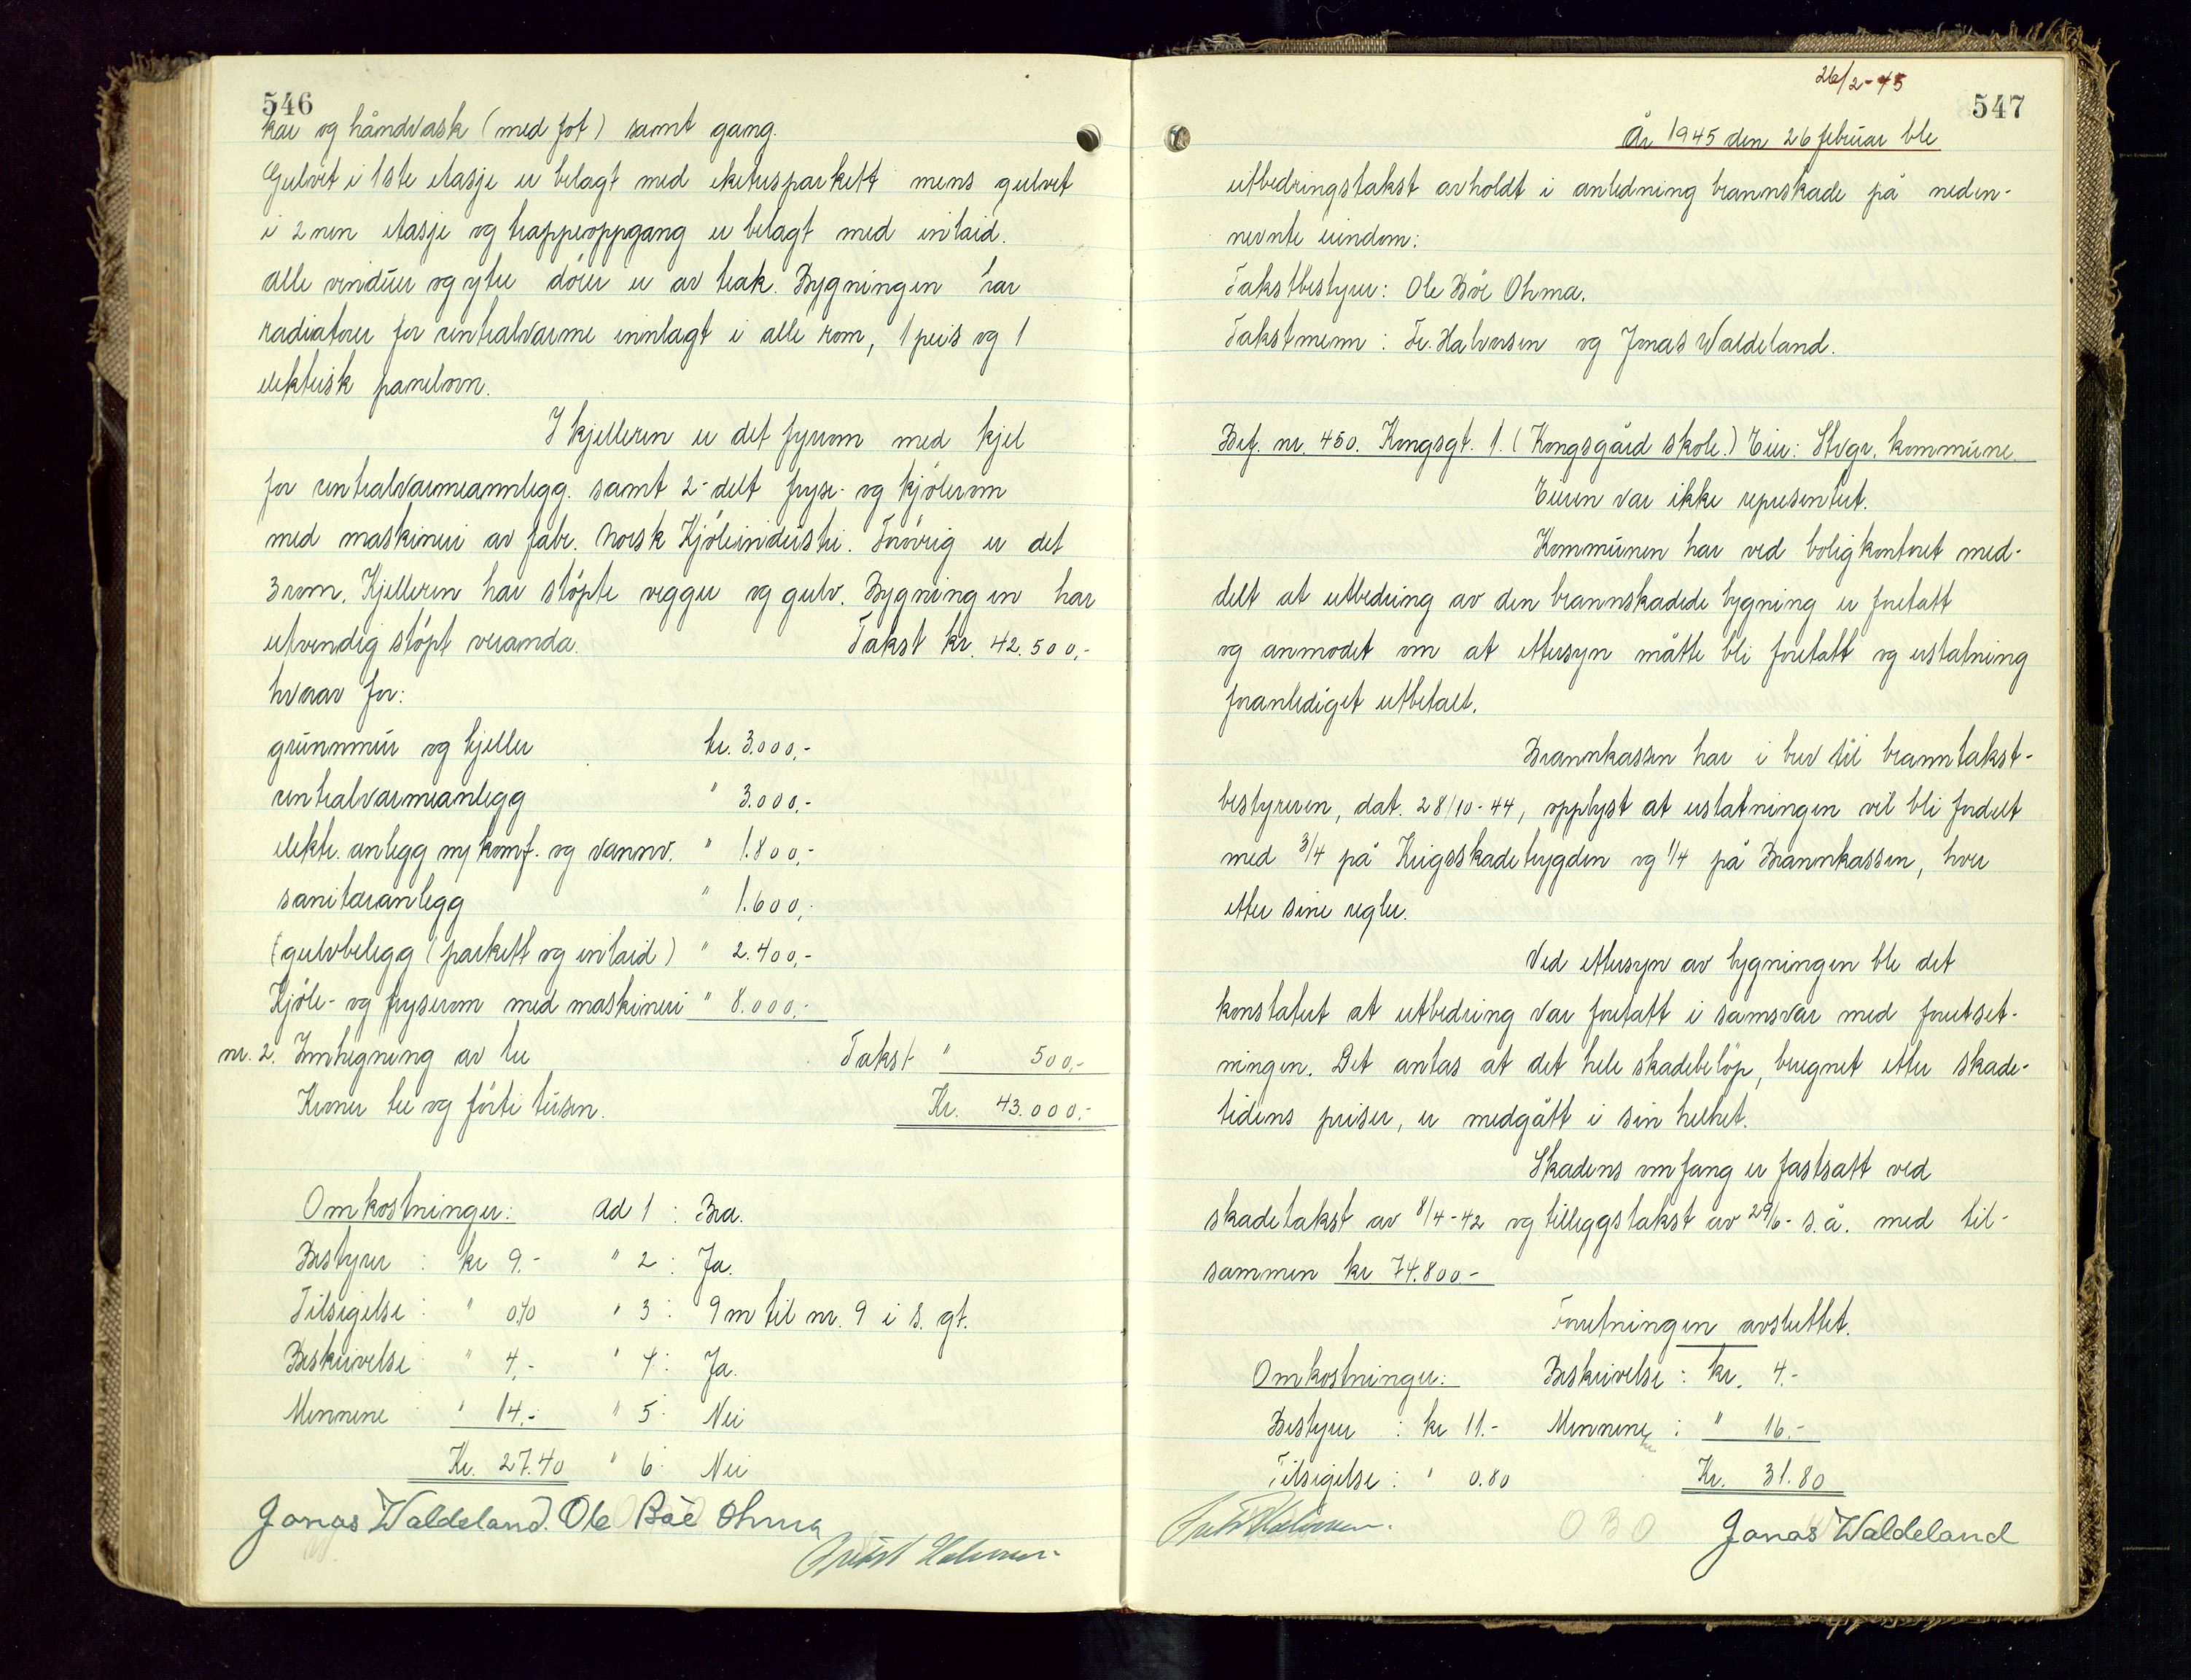 546
kar og håndvask (med fot) samt gang.
Gulvet i 1ste etasje er belagt med eketresparkett mens gulvet
i 2nen etasje og trappeoppgang er belagt med inlaid.
Alle vinduer og ytre dører er av teak. Bygningen har
radiatorer for sentralvarme innlagt i alle rom, 1 peis og 1
elektrisk panelovn.
I kjelleren er det fyrrom med kjel
for sentralvarmeannlegg samt 2-delt fryse- og kjølerom
med maskineri av fabr. Norsk Kjøleindustri. Forøvrig er det
3 rom. Kjelleren har støpte vegger og gulv. Bygningen har
utvendig støpt veranda. Takst kr. 42.500,-
hvorav for:
grunnmur og kjeller kr. 3.000,-
sentralvarmeanlegg " 3.000,-
elektr. anlegg m/komf. og vannv. " 1.800,-
sanitæranlegg " 1.600,-
gulvbelegg (parkett og inlaid) " 2.400,-
Kjøle- og fryserom med maskineri " 8.000,-
nr. 2. Innhegning av tre Takst " 500,-
Kroner tre og førti tusen. Kr. 43.000,-
Omkostninger: Ad 1 : Bra.
Bestyrer : kr 9.- " 2 : Ja.
Tilsigelse : " 0.40 " 3 : 9 m til nr. 9 i s. gt.
Beskrivelse " 4,- " 4 : Ja.
Mennene " 14.- " 5 : Nei
Kr. 27.40 " 6 : Nei
Jonas Waldeland. Ole Bøe Ohma
Halvorsen
26/2-45
547
År 1945 den 26 februar ble
utbedringstakst avholdt i anledning brannskade på neden-
nevnte eiendom:
Takstbestyrer: Ole Bøe Ohma.
Takstmenn : Fr. Halvorsen og Jonas Waldeland.
Bef. nr. 450. Kongsgt. 1. (Kongsgård skole.) Eier: Stvgr. kommune.
Eieren var ikke representert.
Kommunen har ved boligkontoret med-
delt at utbedring av den brannskadede bygning er foretatt
og anmodet om at ettersyn måtte bli foretatt og erstatning
foranlediget utbetalt.
Brannkassen har i brev til branntakst-
bestyreren, dat. 28/10-44, opplyst at erstatningen vil bli fordelt
med 3/4 på Krigsskadetrygden og 1/4 på Brannkassen, hver
etter sine regler.
Ved ettersyn av bygningen ble det
konstatert at utbedring var foretatt i samsvar med forutset-
ningen. Det antas at det hele skadebeløp, beregnet etter skade-
tidens priser, er medgått i sin helhet.
Skadens omfang er fastsatt ved
skadetakst av 8/4-42 og tilleggstakst av 29/6- s.å. med til-
sammen kr 74.800.-
Forretningen avsluttet.
Omkostninger: Beskrivelse : kr. 4.-
Bestyrer : kr 11.- Mennene : " 16.-
Tilsigelse : " 0.80 Kr. 31.80
Halvorsen. OBO Jonas Waldeland